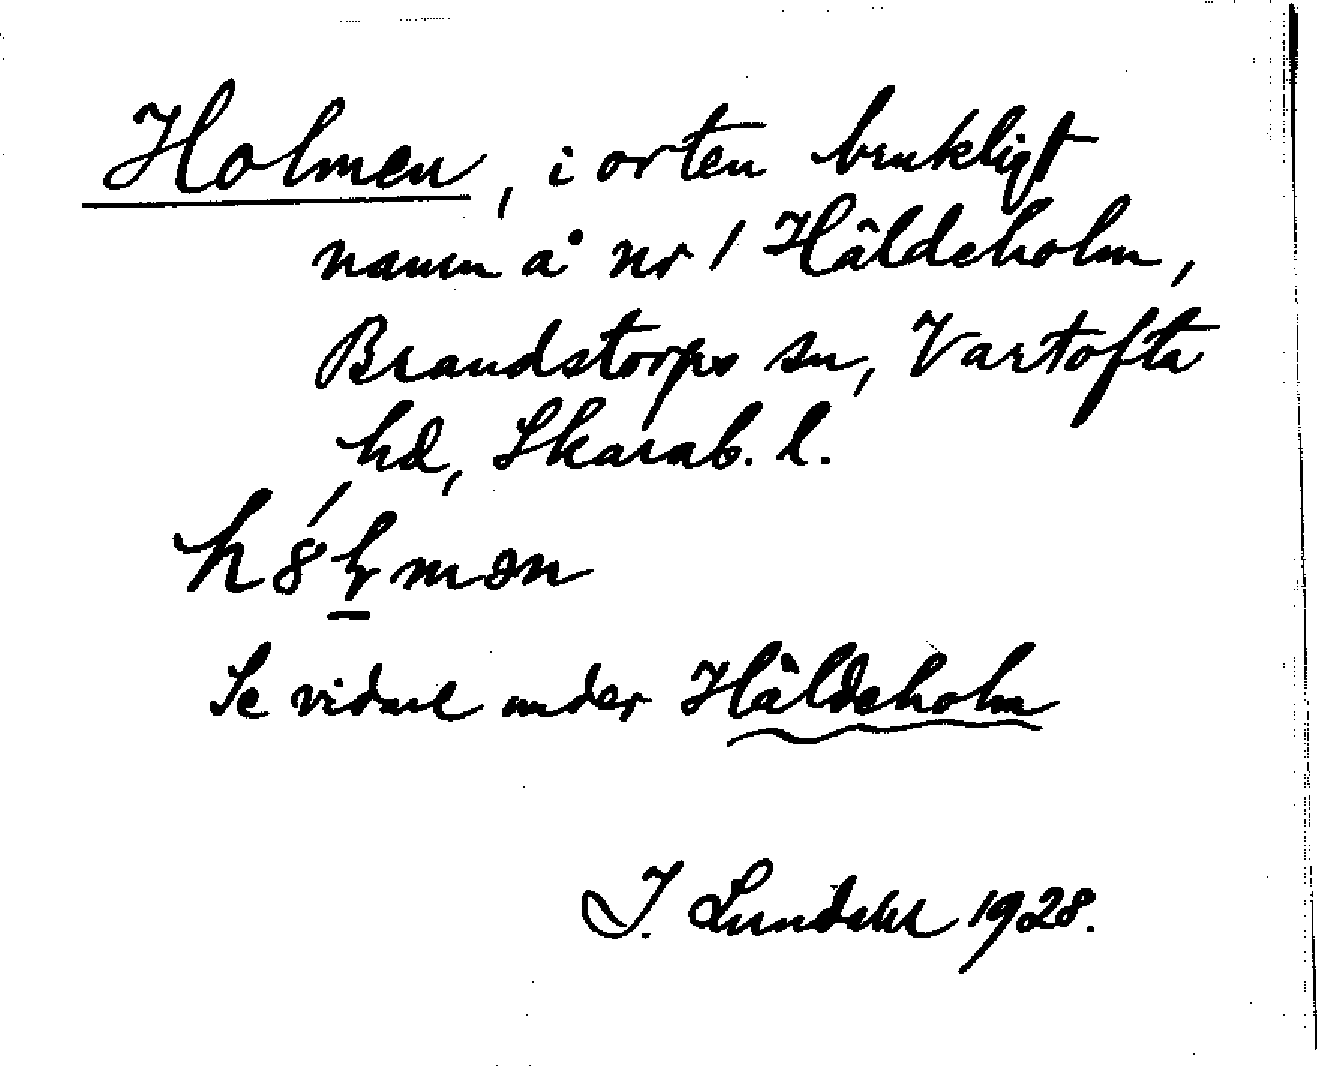 Holmen, i orten brukligt
namn å nr 1 Häldeholm,
Brandstorps sn, Vartofta
hd, Skarab. l.
Se vidare under Häldeholm
I. Lundahl 1928.